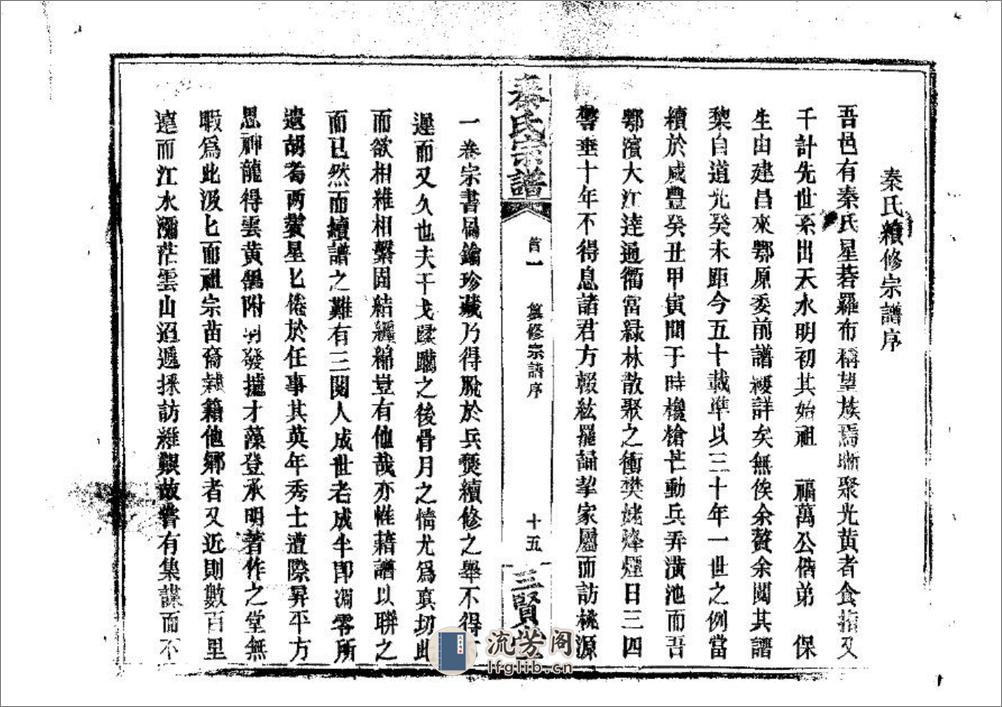 秦氏續修宗譜序
吾邑有秦氏星碁羅布稱望族焉聚光黃者食指又
千計先世系出天水明初其始祖 福萬公偕弟 保
生由建昌來鄂原委前譜綦詳矣無俟余贅余閱其譜
黎自道光癸未距今五十載準以三十年一世之例當
續於咸豐癸丑甲寅間于時欃槍芒動兵弄潢池而吾
鄂濱大江逵通衢當綠林散聚之衝樊姥烽煙日三四
警垂十年不得息諸君方輟絃罷誦挈家屬而訪桃源
秦氏宗譜
首一
篡修宗譜序
十五
三賢
一卷宗書扃鑰珍藏乃得脫於兵燹續修之舉不得
遲而又久也夫干戈蹂躪之後骨月之情尤爲真切此
而欲相維相繫固結纏綿豈有他哉亦惟藉譜以聯之
而已然而續譜之難有三閱人成世老成半即凋零所
遺胡耈兩鬢星匕倦於任事其英年秀士遭際昇平方
思神龍得雲黃鵠附 發攄才藻登承明著作之堂無
暇爲此汲匕而祖宗苗裔隸籍他鄉者又近則數百里
遠而江水瀰茫雲山迢遞採訪維艱故嘗有集議而不
流芳阁
lfglib.cn